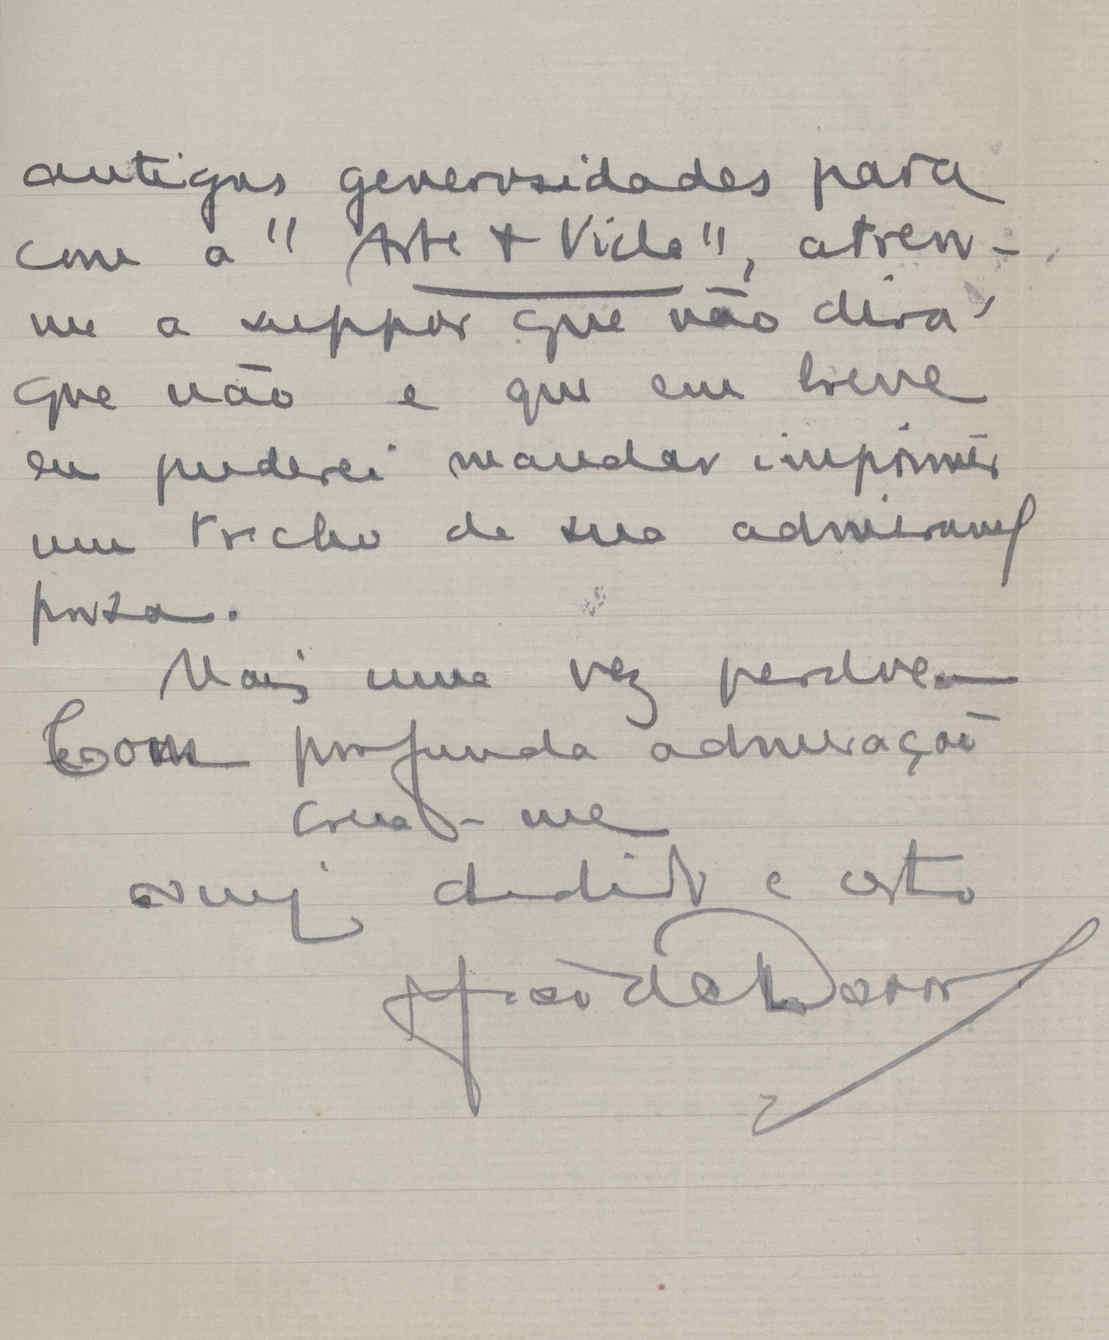 antigas generosidades para
com a "Arte & Vida", atrevo-
me a suppor que não dirá
que não e que em breve
eu puderei mandar imprimir
um trecho de sua admiravel
proza.
Mais uma vez perdoe.
Com profunda admiração
creia-me
amº dedicº e certo
João de Barros